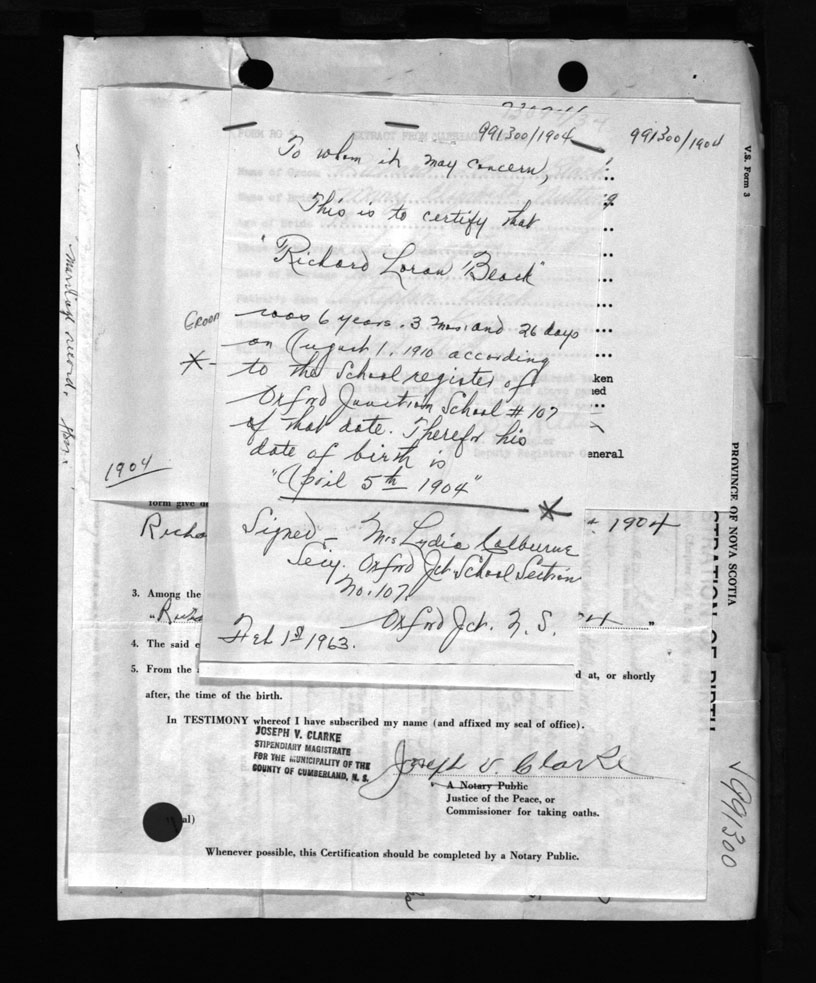 991300/1904
991300/1904
V.S. Form 3
To whom it may concern,
This is to certify that
"Richard Loran Black"
was 6 years. 3 mos. and 26 days
on August 1. 1910 according
to the School register of
Oxford Junction School # 107
of that date. Therefor his
date of birth is
"April 5th 1904"
Signed - Mrs Lydia Colburne
Secy. Oxford Jct School Section
No. 107
Oxford Jct. N. S.
Feb 1st 1963.
Groom
1904
Marriage record.
ken
ed
eneral
PROVINCE OF NOVA SCOTIA
STRATION OF BIRTH
form give
Richa
1904
3. Among the
"Richa
4. The said
5. From the
d at, or shortly
after, the time of the birth.
In TESTIMONY whereof I have subscribed my name (and affixed my seal of office).
JOSEPH V. CLARKE
STIPENDIARY MAGISTRATE
FOR THE MUNICIPALITY OF THE
COUNTY OF CUMBERLAND, N. S.
Joseph V. Clarke
A Notary Public
Justice of the Peace, or
Commissioner for taking oaths.
al)
Whenever possible, this Certification should be completed by a Notary Public.
991300